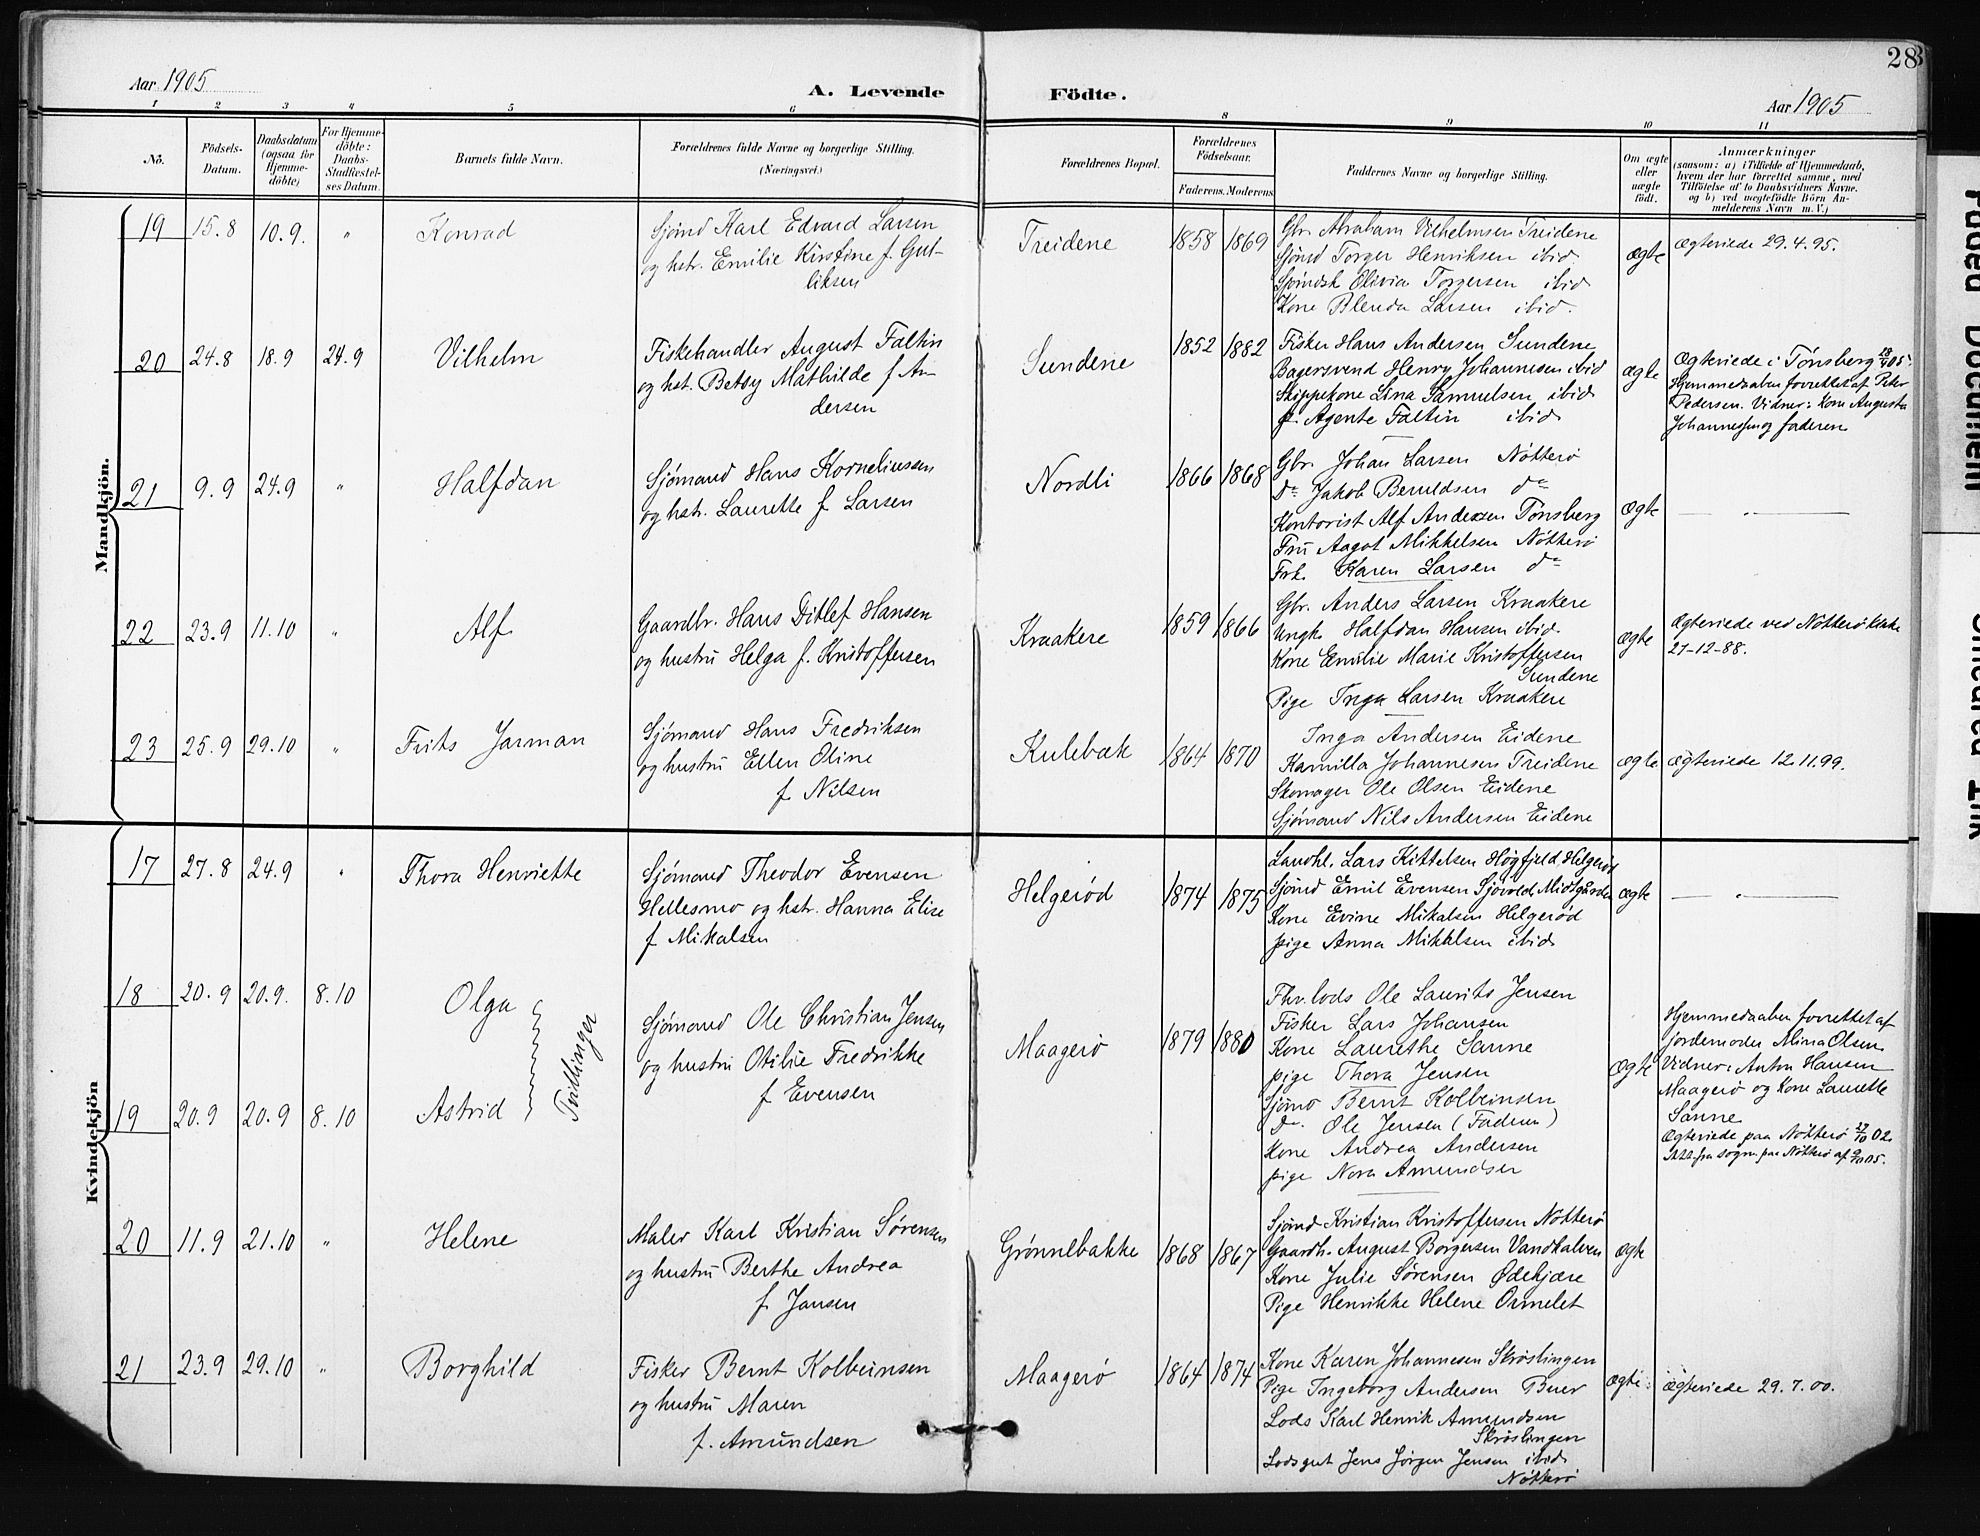 28
Aar 1905
A. Levende Födte.
Aar 1905
1 2 3 4 5 6 8 9 10 11
No.
Födsels-Datum.
Daabsdatum (ogsaa for Hjemmedöbte)
For Hjemmedöbte: Daabs-Stadfæstelses Datum.
Barnets fulde Navn.
Forældrenes fulde Navne og borgerlige Stilling.
(Næringsvei.)
Forældrenes Bopæl.
Forældrenes Födselsaar.
Faderens. Moderens.
Faddernes Navne og borgerlige Stilling.
Om ægte eller uægte födt.
Anmærkninger
(saasom: a) i Tilfælde af Hjemmedaab,
hvem der har forrettet samme, med
Tilföielse af to Daabsvidners Navne.
og b) ved uægtefödte Börn An-
melderens Navn m. V.)
Mandkjön.
19 15.8 10.9. " Konrad
Sjömd Karl Edvard Larsen
og hstr. Emilie Kirstine f. Gul-
liksen
Treidene 1858 1869
Gbr. Abraham Vilhelmsen Treidene
Sjömd Torger Henriksen ibid.
Sjömdsk Olivia Torgersen ibid
Kone Blenda Larsen ibid.
ægte
Ægteviede 29.4.95.
20 24.8 18.9 24.9 Vilhelm
Fiskehandler August Faltin
og hst. Betsy Mathilde f An-
dersen
Sundene 1852 1882
Fisker Hans Andersen Sundene
Bagersvend Henry Johannesen ibid
Skippekone Lina Samuelsen ibid
p. Agente Faltin ibid
ægte
Ægteviede i Tönsberg 05.
Hjemmedaaben forrettet af Peter
Pedersen. Vidner: Kone Augusta
Johannessen og faderen
21 9.9 24.9 " Halfdan
Sjømand Hans Korneliussen
og hstr. Laurette f Larsen
Nordli 1866 1868
Gbr. Johan Larsen Nötterö
do Jakob Beruldsen do
Kontorist Alf Andersen Tønsberg
Fru Aagot Mikkelsen Nötterö
Frk. Karen Larsen do
ægte
— " —
22 23.9 11.10 " Alf
Gaardbr. Hans Ditlef Hansen
og hustru Helga f. Kristoffersen
Kraakere 1859 1866
Gbr. Anders Larsen Kraakere
Ungk. Halfdan Hansen ibid.
Kone Emilie Marie Kristoffersen
Sundene
Pige Inga Larsen Kraakere
ægte
Ægteviede ved Nötterö Kirke
27-12-88.
23 25.9 29.10 " Frits Jarman
Sjømand Hans Fredriksen
og hustru Ellen Oline
f. Nilsen
Kulebæk 1864 1870
Inga Andersen Eidene
Kamilla Johannesen Treidene
Skomager Ole Olsen Eidene
Sjömand Nils Andersen Eidene
ægte
Ægteviede 12.11.99.
Kvindekjön
17 27.8 24.9 " Thora Henriette
Sjømand Theodor Evensen
Hellesmo og hstr. Hanna Elise
f Mikalsen
Helgerød 1874 1875
Landhl. Lars Kittelsen Högfjeld, Helgerød
Sjömd Emil Evensen Sjövold Midtgården
Kone Evine Mikalsen Helgerød
pige Anna Mikkelsen ibid
ægte
— " —
18 20.9 20.9. 8.10 Olga
19 20.9 20.9 8.10 Astrid
Tvillinger
Sjømand Ole Christian Jensen
og hustru Otilie Fredrikke
f Evensen
Maagerö 1879 1880
Fhv. lods Ole Laurits Jensen
Fisker Lars Johansen
Kone Laurethe Sanne
pige Thora Jensen
Sjömd Bernt Kolbeinsen
do. Ole Jensen (Faderen)
Kone Andrea Andersen
pige Nora Amundsen
ægte
Hjemmedaaben forrettet af
jordemoder Mina Olsen.
Vidner: Anton Hansen
Maagerö og Kone Laurette
Sanne
Ægteviede paa Nötterö 27/10 02.
Attt fra sogn. paa Nötterö af 05.
20 11.9 21.10 " Helene
Maler Karl Kristian Sørensen
og hustru Berthe Andrea
f. Jansen
Grønnebakke 1868 1867
Sjömd Kristian Kristoffersen Nötterö
Gaardb. August Borgersen Vandkalven
Kone Julie Sørensen Ødekjære
Pige Henrikke Helene Ormelet
ægte
21 23.9 29.10 " Borghild
Fisker Bernt Kolbeinsen
og hustru Maren
f. Amundsen
Maagerö 1864 1874
Kone Karen Johannesen Skröslingen
Pige Ingeborg Andersen Buer
Lods Karl Henrik Amundsen
Skröslingen
Lodsgut Jens Jørgen Jensen ibid
Nötterö
ægte.
Ægteviede 29.7.00.